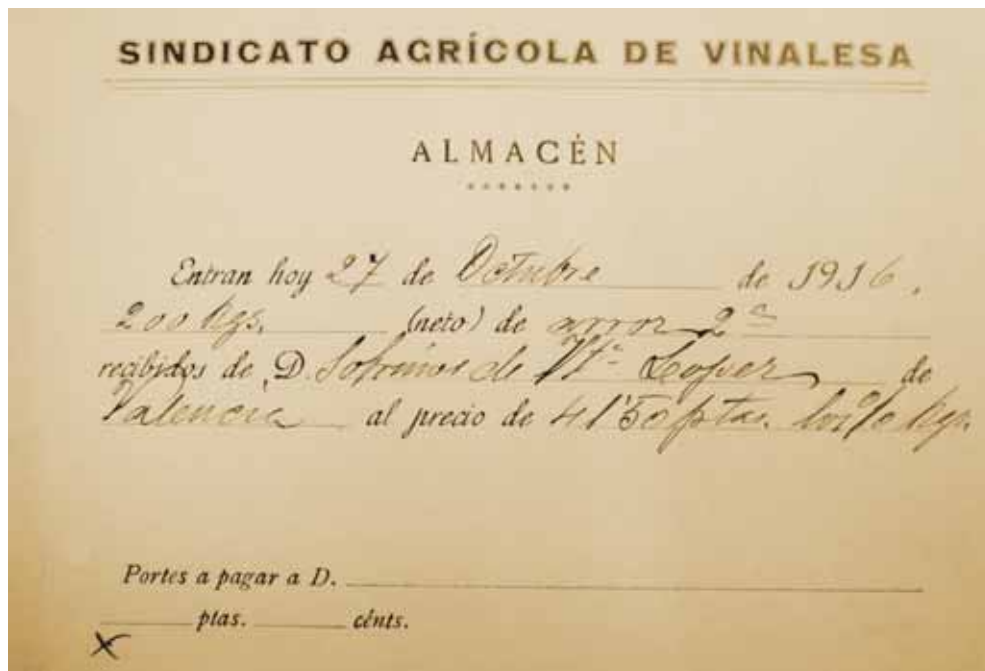 SINDICATO AGRÍCOLA DE VINALESA
ALMACÉN
Entran hoy 27 de Octubre de 1916.
200 Kgs. (neto) de arroz 2ª
recibidos de D. Sobrinos de Vtª Lopez de
Valencia al precio de 41'50 ptas. los % Kgs.
Portes a pagar a D.
ptas. cénts.
X